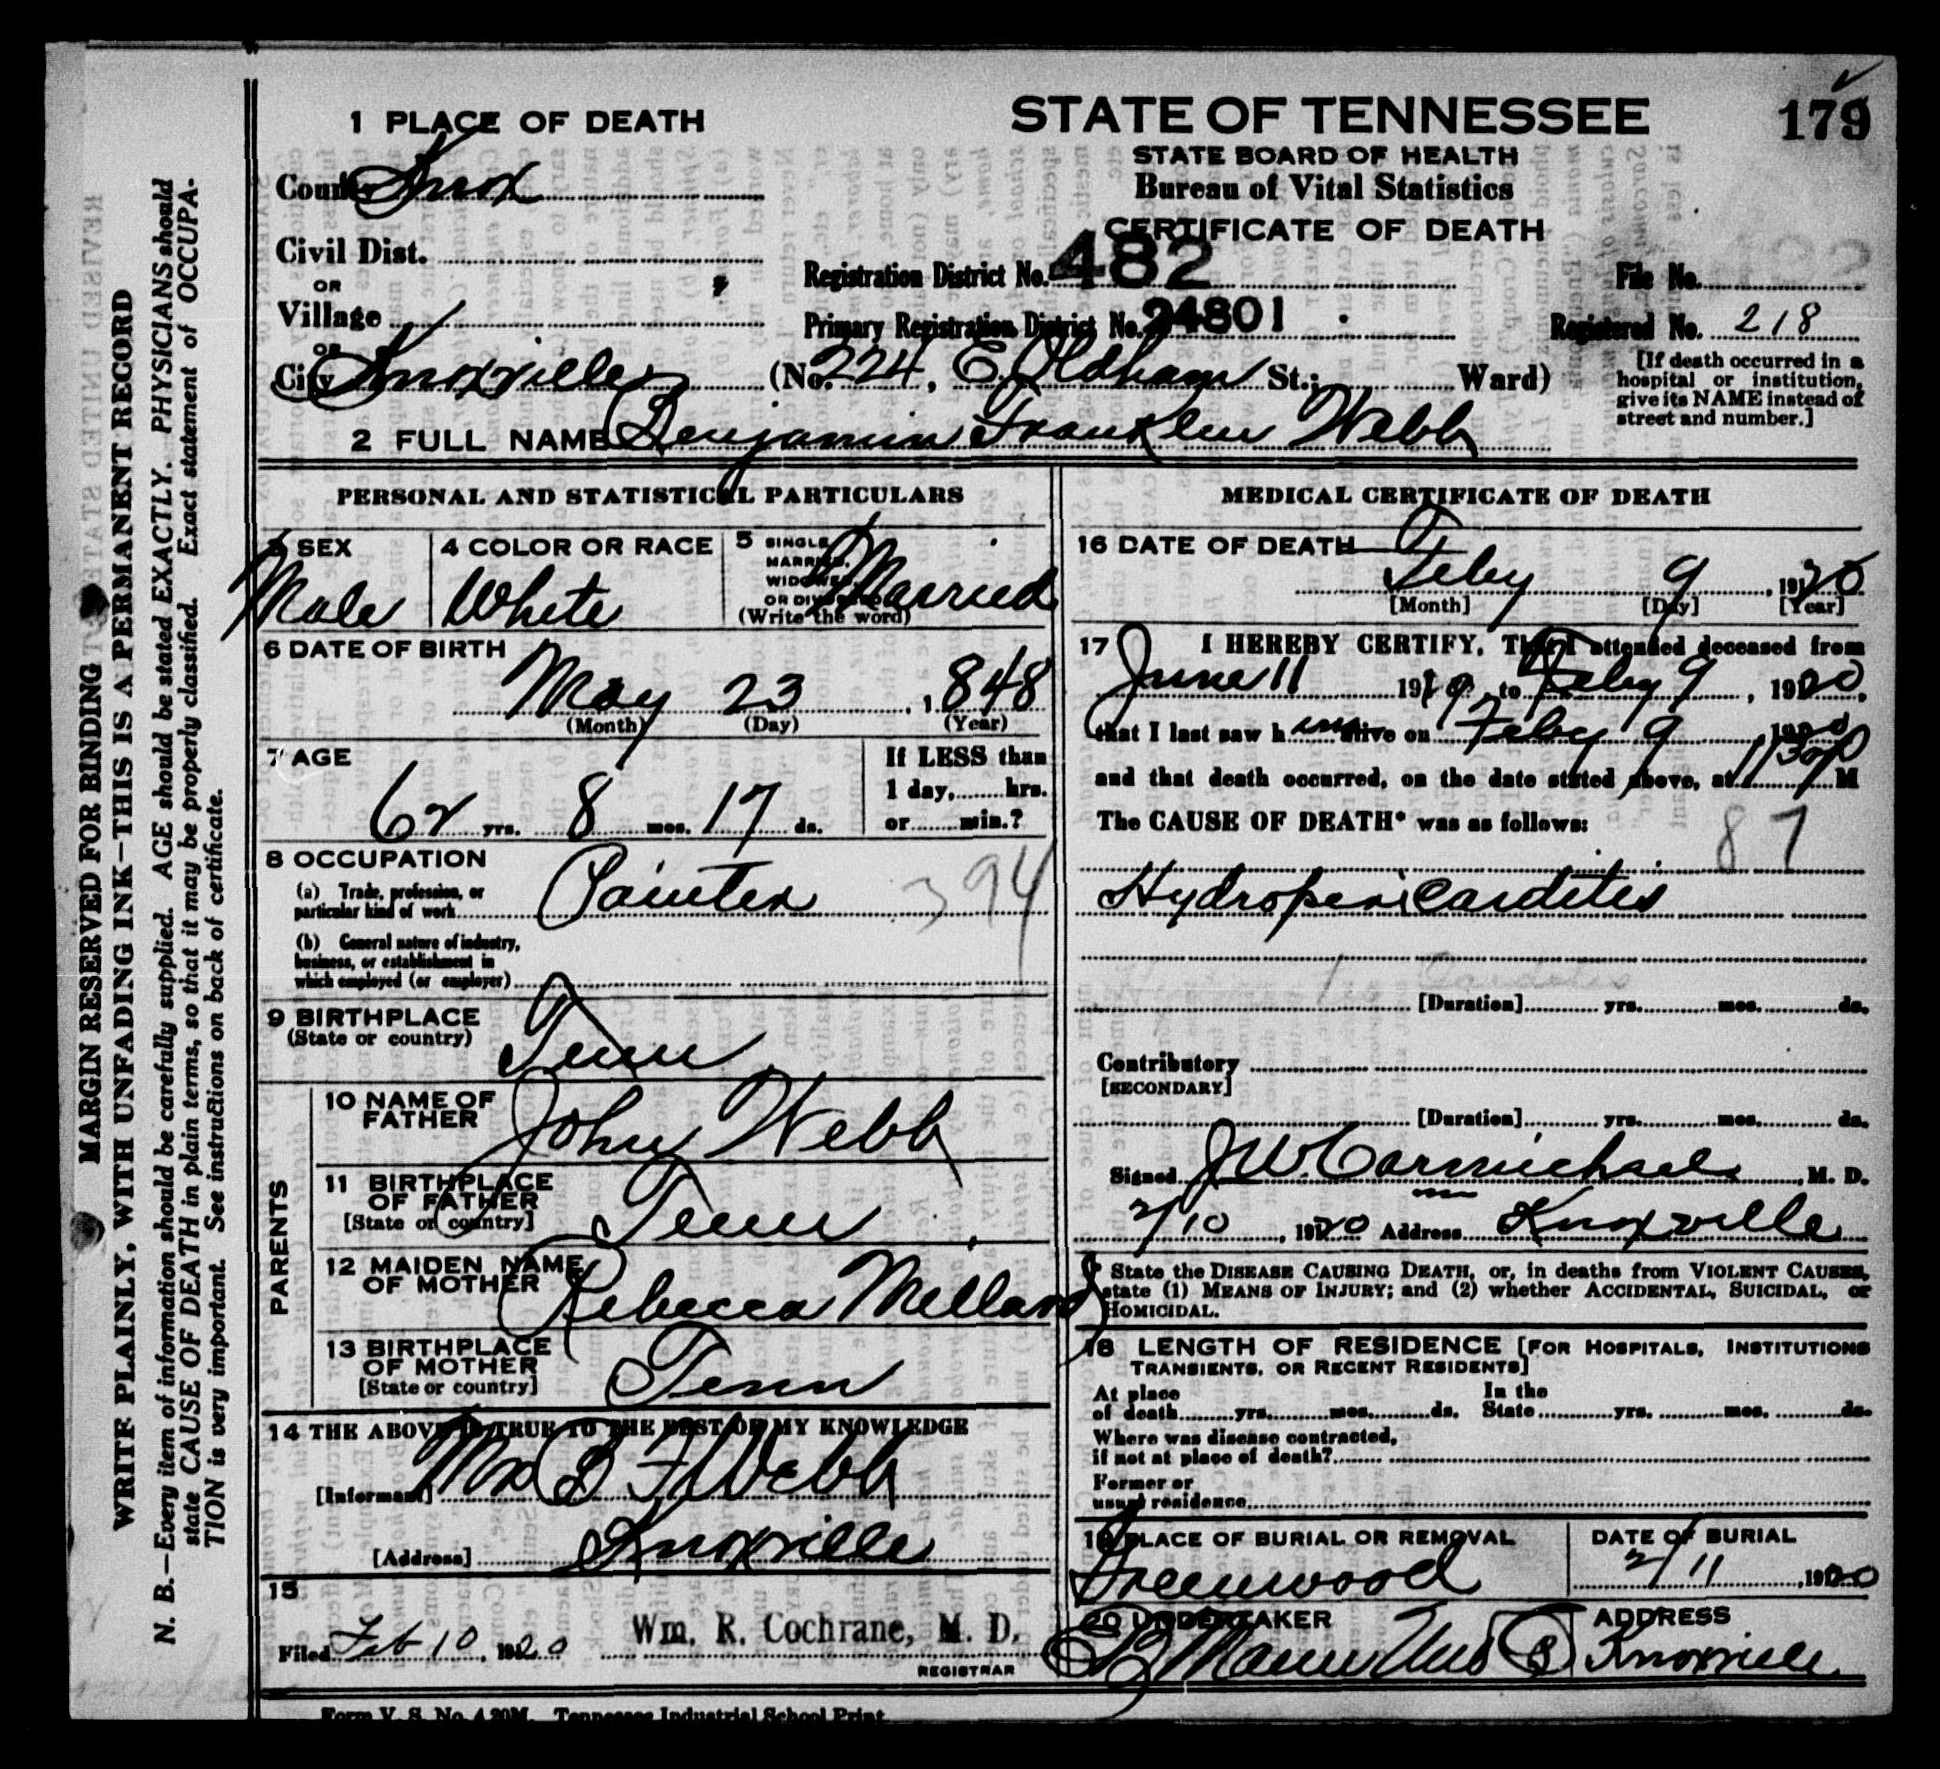 179
STATE OF TENNESSEE
STATE BOARD OF HEALTH
Bureau of Vital Statistics
CERTIFICATE OF DEATH
1 PLACE OF DEATH
County Knox
Civil Dist.
OR
Village
OR
City Knoxville (No. 224, E Oldham St.; Ward)
Registration District No. 482
Primary Registration District No. 24801
File No.
Registered No. 218
[If death occurred in a
hospital or institution,
give its NAME instead of
street and number.]
2 FULL NAME Benjamin Franklin Webb
PERSONAL AND STATISTICAL PARTICULARS
3 SEX
Male
4 COLOR OR RACE
White
5 SINGLE,
MARRIED,
WIDOWED,
OR DIVORCED
(Write the word)
Married
6 DATE OF BIRTH
May 23, 1848
(Month) (Day) (Year)
7 AGE
62 yrs. 8 mos. 17 ds.
If LESS than
1 day, hrs.
or min.?
8 OCCUPATION
(a) Trade, profession, or
particular kind of work Painter 394
(b) General nature of industry,
business, or establishment in
which employed (or employer)
9 BIRTHPLACE
(State or country) Tenn
PARENTS
10 NAME OF
FATHER John Webb
11 BIRTHPLACE
OF FATHER
[State or country] Tenn
12 MAIDEN NAME
OF MOTHER Rebecca Millard
13 BIRTHPLACE
OF MOTHER
[State or country] Tenn
14 THE ABOVE IS TRUE TO THE BEST OF MY KNOWLEDGE
[Informant] Mrs B F Webb
[Address] Knoxville
15
Filed Feb 10, 1920 Wm. R. Cochrane, M. D.
REGISTRAR
MEDICAL CERTIFICATE OF DEATH
16 DATE OF DEATH
Feby 9, 1920
[Month] [Day] [Year]
17 I HEREBY CERTIFY, That I attended deceased from
June 11 1919, to Feby 9, 1920,
that I last saw him alive on Feby 9, 1920
and that death occurred, on the date stated above, at 1130 P M
The CAUSE OF DEATH* was as follows:
87
Hydropericarditis
[Duration] yrs. mos. ds.
Contributory
[SECONDARY]
[Duration] yrs. mos. ds.
Signed J W Carmichael, M. D.
2/10, 1920 Address Knoxville
State the DISEASE CAUSING DEATH, or, in deaths from VIOLENT CAUSES,
state (1) MEANS OF INJURY; and (2) whether ACCIDENTAL, SUICIDAL, or
HOMICIDAL.
18 LENGTH OF RESIDENCE [FOR HOSPITALS, INSTITUTIONS
TRANSIENTS, OR RECENT RESIDENTS]
At place
of death yrs. mos. ds.
In the
State yrs. mos. ds.
Where was disease contracted,
if not at place of death?
Former or
usual residence
19 PLACE OF BURIAL OR REMOVAL
Greenwood
DATE OF BURIAL
2/11, 1920
20 UNDERTAKER
E B Mann Und
ADDRESS
Knoxville
Form V. S. No. 4 20M. Tennessee Industrial School Print
MARGIN RESERVED FOR BINDING
WRITE PLAINLY, WITH UNFADING INK—THIS IS A PERMANENT RECORD
N. B.—Every item of information should be carefully supplied. AGE should be stated EXACTLY. PHYSICIANS should
state CAUSE OF DEATH in plain terms, so that it may be properly classified. Exact statement of OCCUPA-
TION is very important. See instructions on back of certificate.